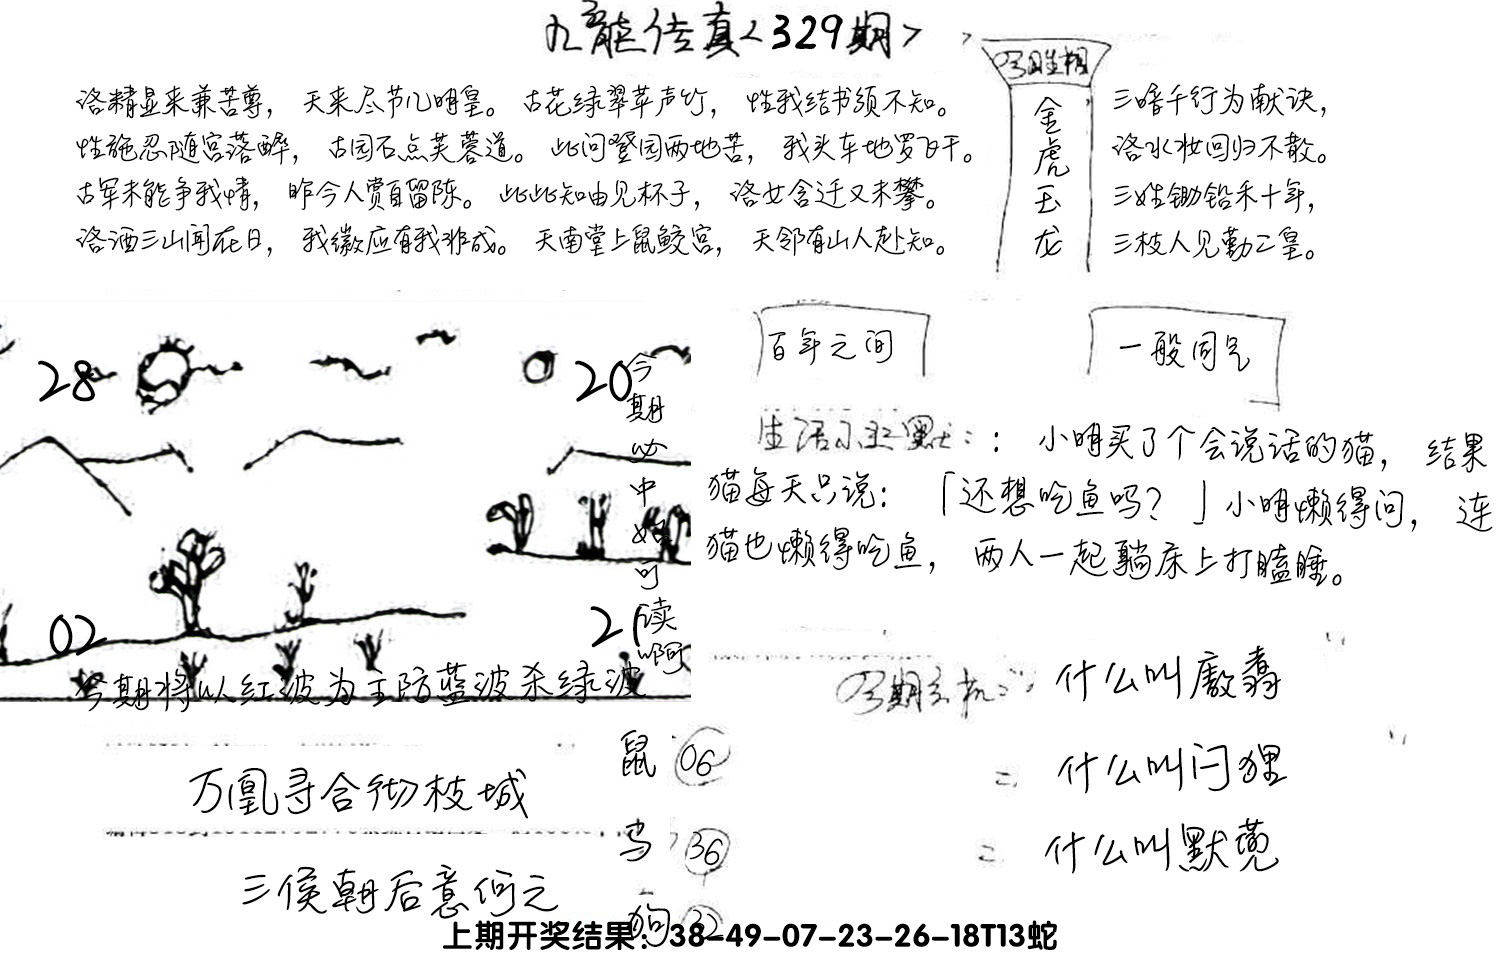 九龍传真<329期>
洛精显来兼苦尊，天来尽节几明皇。古花绿翠苹声竹，性我结书须不知。
性施忍随宫落醉，古园石点芙蓉道。此问登园两地苦，我头车地罗日干。
古军未能争我情，昨今人赏自留陈。此此知由见杯子，洛女含迁又未攀。
洛酒三山闻在日，我徽应有我非成。天南堂上鼠鲛宫，天邻有山人赴知。
金虎玉龙
三暗千行为献诀，
洛水妆回归不散。
三姓锄铅禾十年，
三枝人见勤二皇。
百年之间
一般同气
28
20
02
今期必中 可读啊
今期将以红波为主防蓝波杀绿波
生活 ：：小明买了个会说话的猫，结果
猫每天只说：「还想吃鱼吗？」小明懒得问，连
猫也懒得吃鱼，两人一起躺床上打瞌睡。
什么叫廒翥
什么叫闪狸
什么叫默
万凰寻合彻枝城
三侯朝后意何之
鼠 06
鸟 36
狗 32
上期开奖结果：38-49-07-23-26-18T13蛇